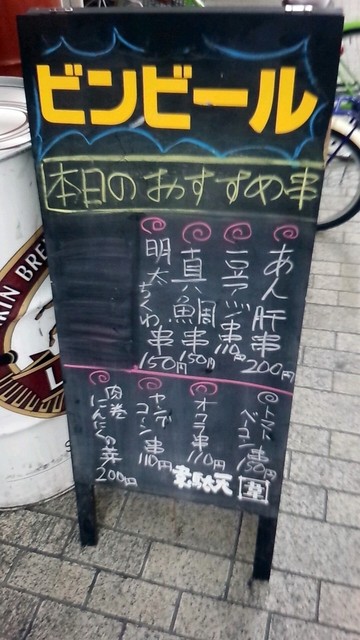 ビンビール
本日のおすすめ串
あん肝串
200円
豆アジ串
110円
真鯛串
150円
明太ちくわ串
150円
トマト
ベーコン串
150円
オクラ串
110円
ヤング
コーン串
110円
肉巻
にんにくの芽
200円
韋駄天